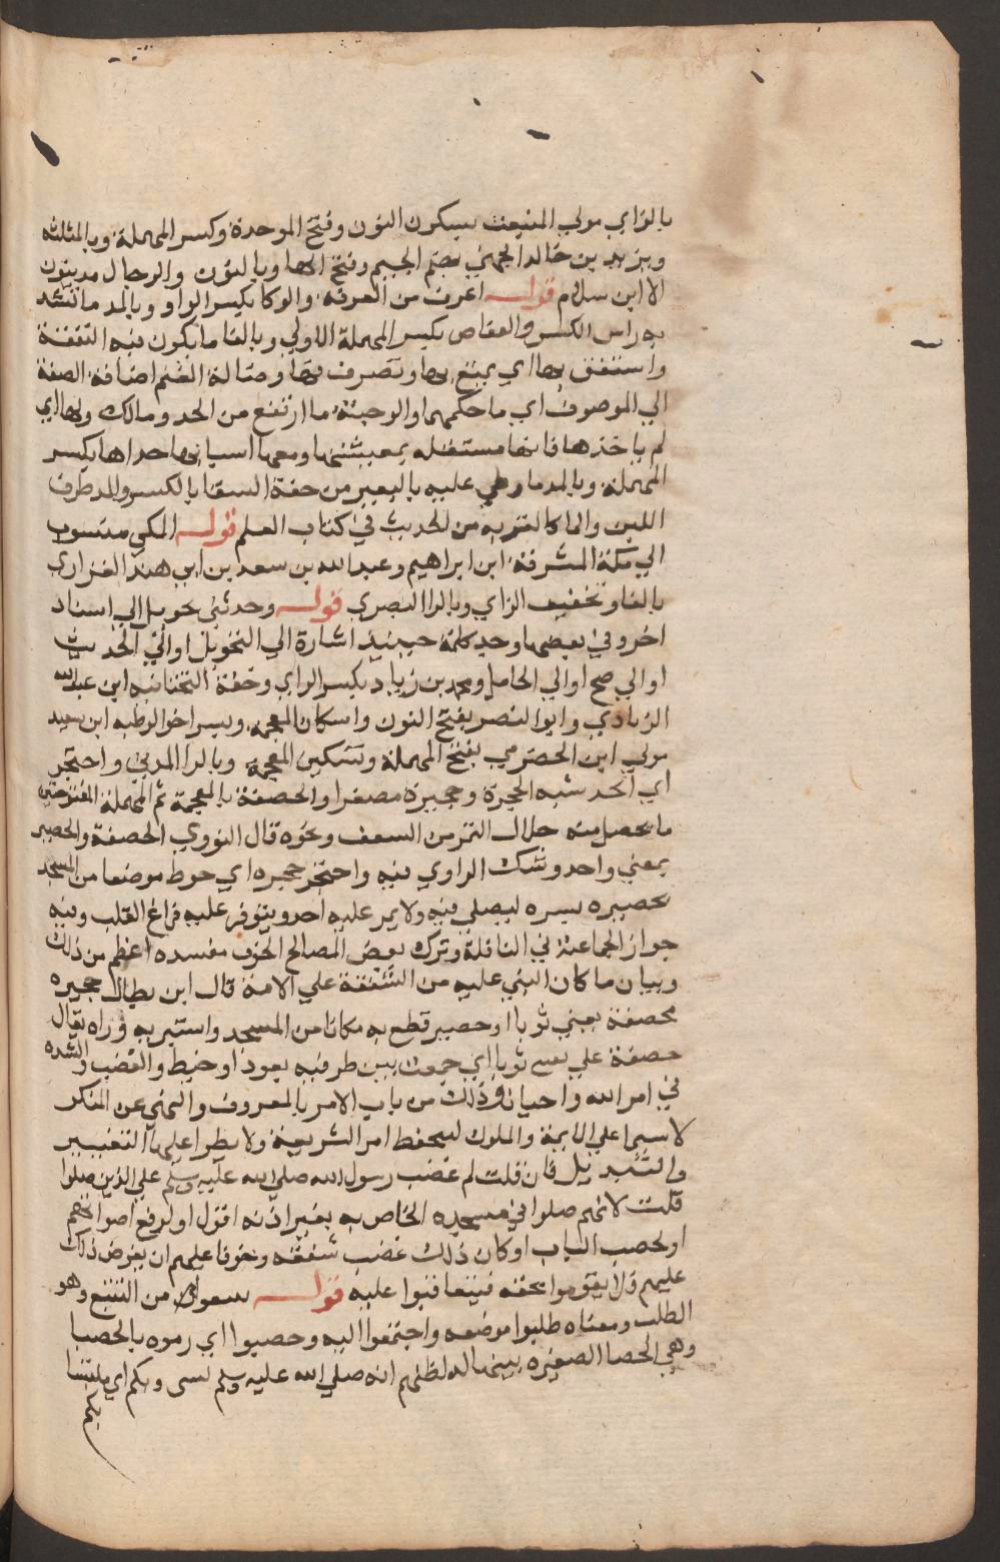 بالزاي مولي المنبعث بسكون النون وفتح الموحدة وكسر المهملة وبالمثلثه
ويزيد بن خالد الجهني بضم الجيم وفتح الها وبالنون والرجال مدنيون
الا ابن سلام قوله اعرف من المعرفه والوكا بكسر الواو وبالمد ما تشد
به راس الكيس والعفاص بكسر المهملة الاولي وبالفا ما يكون فيه النفقة
واستنفق بها اي تمتع بها وتصرف فيها وضالة الغنم اضافة الصفة
الي الموصوف اي ما حكمها والوجنة ما ارتفع من الخد ومالك ولها اي
لم ياخذها فانها مستقله بمعيشتها ومعها اسبابها حداها بكسر
المهملة وبالمد ما وطي عليه بالبعير من خفة السقا بالكسر والمد ظرف
اللبن والما كالقربه من الحديث في كتاب العلم قوله المكي منسوب
الي مكة المشرفة ابن ابراهيم وعبد الله بن سعد بن ابي هند الفزاري
بالفا وتخفيف الزاي وبالرا البصري قوله وحدثني تحويل الي اسناد
اخر وفي بعضها وجد كلمة حينئذ اشارة الي التحويل او الي الحديث
او الي صح او الي الحايل ومحمد بن زياد بكسر الزاي وخفة التحتانيه ابن عبد الله
الزيادي وابو النضر بفتح النون واسكان المعجمه وبسر اخو الرطبه ابن سعيد
مولي ابن الحضرمي بفتح المهملة وتسكين المعجمة وبالرا المدني واحتجر
اي اتخذ شبه الحجرة وحجيرة مصغرا والخصفة بالمعجمة ثم المهملة المفتوحتين
ما يحصل منه جلال التمر من السعف ونحوه قال النووي الخصفة والحصير
بمعني واحد وشك الراوي فيه واحتجر حجيره اي حوط موضعا من المسجد
بحصيره يستره ليصلي فيه ولا يمر عليه احد ويتوفر عليه فراغ القلب وفيه
جواز الجماعة في النافلة وترك بعض المصالح لخوف مفسده اعظم من ذلك
وبيان ما كان النبي عليه من الشفقة علي الامة قال ابن بطال حجيره
مخصفة يعني ثوبا او حصير قطع به مكانا من المسجد واستتر به وراه يقال
خصفة علي نفسي ثوبا اي جمعت بين طرفيه بعود او خيط والغضب والشده
في امر الله واحيانا وذلك من باب الامر بالمعروف والنهي عن المنكر
لا سيما علي الايمة والملوك ليحفظ امر الشريعة ولا يطرا عليها التغيير
والتبديل فان قلت لم غضب رسول الله صلي الله عليه وسلم علي الذين صلوا
قلت لانهم صلوا في مسجده الخاص به بغير اذنه اقول او لرفع اصواتهم
او لحصب الباب او كان ذلك غضب شفقه وخوفا عليهم ان يفرض ذلك
عليهم فلا يقوموا بحقه فيتعاقبوا عليه قوله من التتبع وهو
الطلب ومعناه طلبوا موضعه واجتمعوا اليه وحصبوا اي رموه بالحصبا
وهي الحصا الصغيره تنبيها له لظنهم انه صلي الله عليه وسلم نسي وبكم اي ملتبسا
بكم